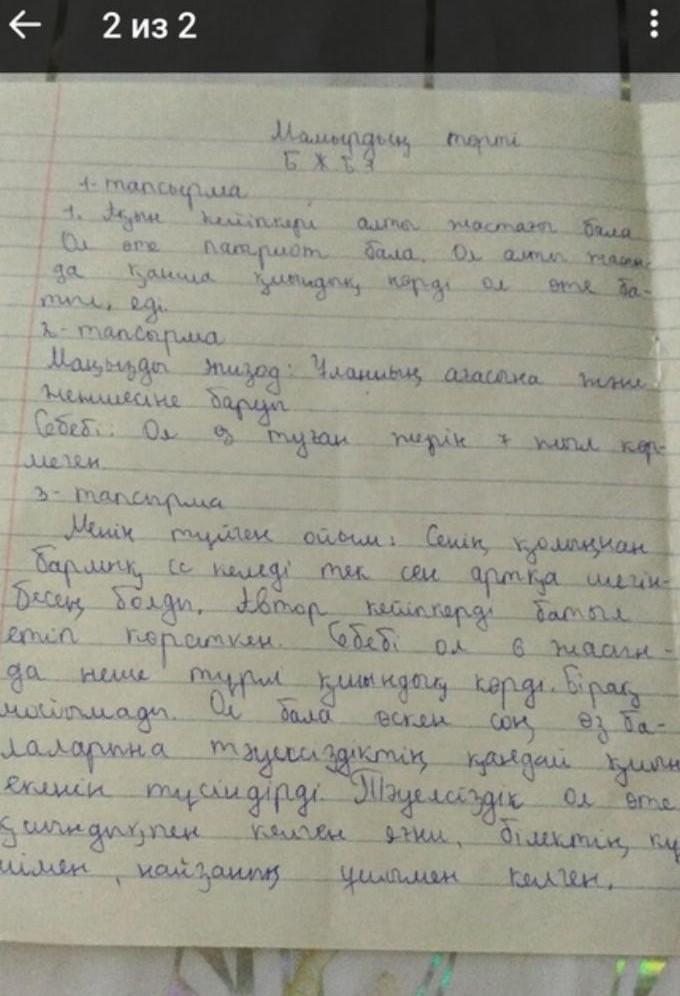 2 из 2
Мамырдың төрті
БЖБ 3
1-тапсырма
1. Ақын кейіпкері алты жастағы бала
Ол өте патриот бала. Ол алты жасын-
да қанша қиындық көрді ол өте ба-
тыл, еді.
2-тапсырма
Маңызды эпизод: Ұланның ағасына және
жеңгесіне баруы
Себебі: Ол өз туған жерін 7 жыл көр-
меген
3-тапсырма
Менің түйген ойым: Сенің қолыңнан
барлық іс келеді тек сен артқа шегін-
бесең болды. Автор кейіпкерді батыл
етіп көрсеткен. Себебі ол 6 жасын-
да неше түрлі қиындық көрді. Бірақ
мойымады. Ол бала өскен соң өз ба-
лаларына тәуелсіздіктің қандай қиын
екенін түсіндірді. Тәуелсіздік ол өте
қиындықпен келген яғни, білектің кү
шімен, найзаның ұшымен келген.